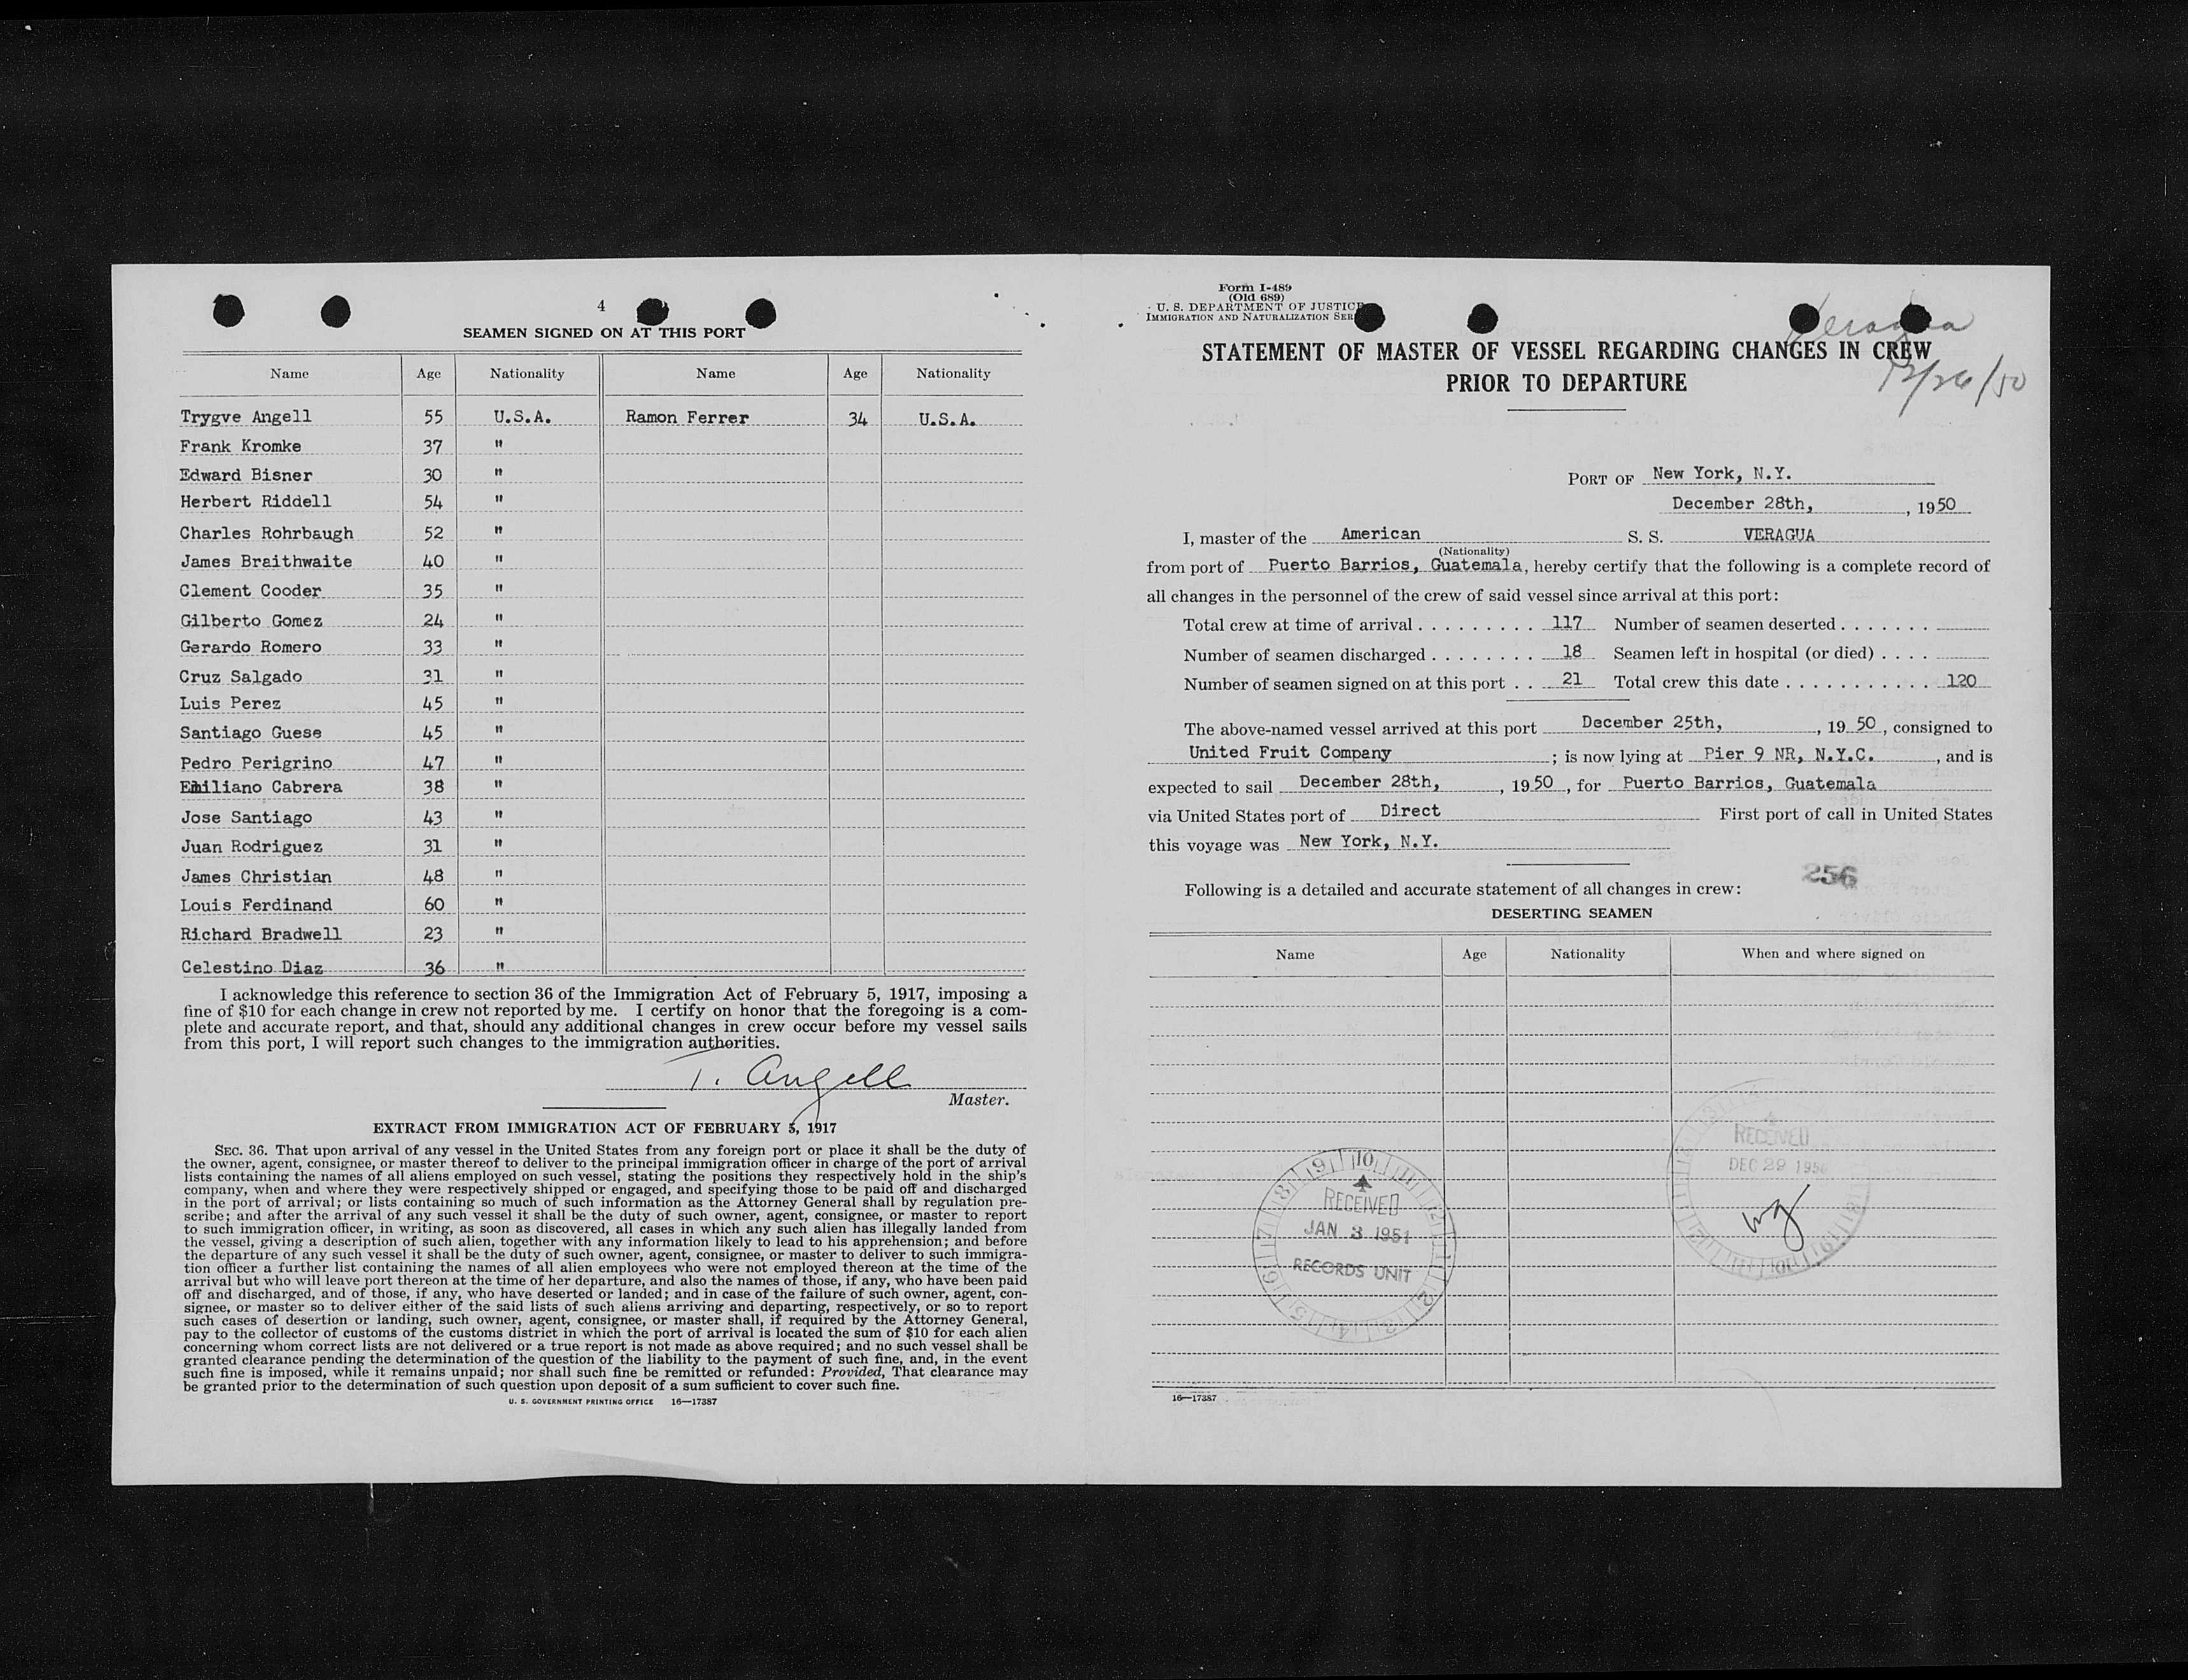 4
SEAMEN SIGNED ON AT THIS PORT
Name Age Nationality Name Age Nationality
Trygve Angell 55 U.S.A. Ramon Ferrer 34 U.S.A.
Frank Kromke 37 "
Edward Bisner 30 "
Herbert Riddell 54 "
Charles Rohrbaugh 52 "
James Braithwaite 40 "
Clement Cooder 35 "
Gilberto Gomez 24 "
Gerardo Romero 33 "
Cruz Salgado 31 "
Luis Perez 45 "
Santiago Guese 45 "
Pedro Perigrino 47 "
Emiliano Cabrera 38 "
Jose Santiago 43 "
Juan Rodriguez 31 "
James Christian 48 "
Louis Ferdinand 60 "
Richard Bradwell 23 "
Celestino Diaz 36 "
I acknowledge this reference to section 36 of the Immigration Act of February 5, 1917, imposing a
fine of $10 for each change in crew not reported by me. I certify on honor that the foregoing is a com-
plete and accurate report, and that, should any additional changes in crew occur before my vessel sails
from this port, I will report such changes to the immigration authorities.
T. Angell
Master.
EXTRACT FROM IMMIGRATION ACT OF FEBRUARY 5, 1917
SEC. 36. That upon arrival of any vessel in the United States from any foreign port or place it shall be the duty of
the owner, agent, consignee, or master thereof to deliver to the principal immigration officer in charge of the port of arrival
lists containing the names of all aliens employed on such vessel, stating the positions they respectively hold in the ship's
company, when and where they were respectively shipped or engaged, and specifying those to be paid off and discharged
in the port of arrival; or lists containing so much of such information as the Attorney General shall by regulation pre-
scribe; and after the arrival of any such vessel it shall be the duty of such owner, agent, consignee, or master to report
to such immigration officer, in writing, as soon as discovered, all cases in which any such alien has illegally landed from
the vessel, giving a description of such alien, together with any information likely to lead to his apprehension; and before
the departure of any such vessel it shall be the duty of such owner, agent, consignee, or master to deliver to such immigra-
tion officer a further list containing the names of all alien employees who were not employed thereon at the time of the
arrival but who will leave port thereon at the time of her departure, and also the names of those, if any, who have been paid
off and discharged, and of those, if any, who have deserted or landed; and in case of the failure of such owner, agent, con-
signee, or master so to deliver either of the said lists of such aliens arriving and departing, respectively, or so to report
such cases of desertion or landing, such owner, agent, consignee, or master shall, if required by the Attorney General,
pay to the collector of customs of the customs district in which the port of arrival is located the sum of $10 for each alien
concerning whom correct lists are not delivered or a true report is not made as above required; and no such vessel shall be
granted clearance pending the determination of the question of the liability to the payment of such fine, and, in the event
such fine is imposed, while it remains unpaid; nor shall such fine be remitted or refunded: Provided, That clearance may
be granted prior to the determination of such question upon deposit of a sum sufficient to cover such fine.
U. S. GOVERNMENT PRINTING OFFICE 16—17387
Form I-489
(Old 689)
U. S. DEPARTMENT OF JUSTICE
IMMIGRATION AND NATURALIZATION SER
Veragua
12/26/50
STATEMENT OF MASTER OF VESSEL REGARDING CHANGES IN CREW
PRIOR TO DEPARTURE
PORT OF New York, N.Y.
December 28th, , 1950
I, master of the American S. S. VERAGUA
(Nationality)
from port of Puerto Barrios, Guatemala, hereby certify that the following is a complete record of
all changes in the personnel of the crew of said vessel since arrival at this port:
Total crew at time of arrival . . . . . . . . . 117 Number of seamen deserted . . . . . . .
Number of seamen discharged . . . . . . . . 18 Seamen left in hospital (or died) . . . .
Number of seamen signed on at this port . . 21 Total crew this date . . . . . . . . . . . 120
The above-named vessel arrived at this port December 25th, , 19 50, consigned to
United Fruit Company ; is now lying at Pier 9 NR, N.Y.C. , and is
expected to sail December 28th, , 1950, for Puerto Barrios, Guatemala
via United States port of Direct First port of call in United States
this voyage was New York, N.Y.
256
Following is a detailed and accurate statement of all changes in crew:
DESERTING SEAMEN
Name Age Nationality When and where signed on
RECEIVED
DEC 29 1950
RECEIVED
JAN 3 1951
RECORDS UNIT
16—17387